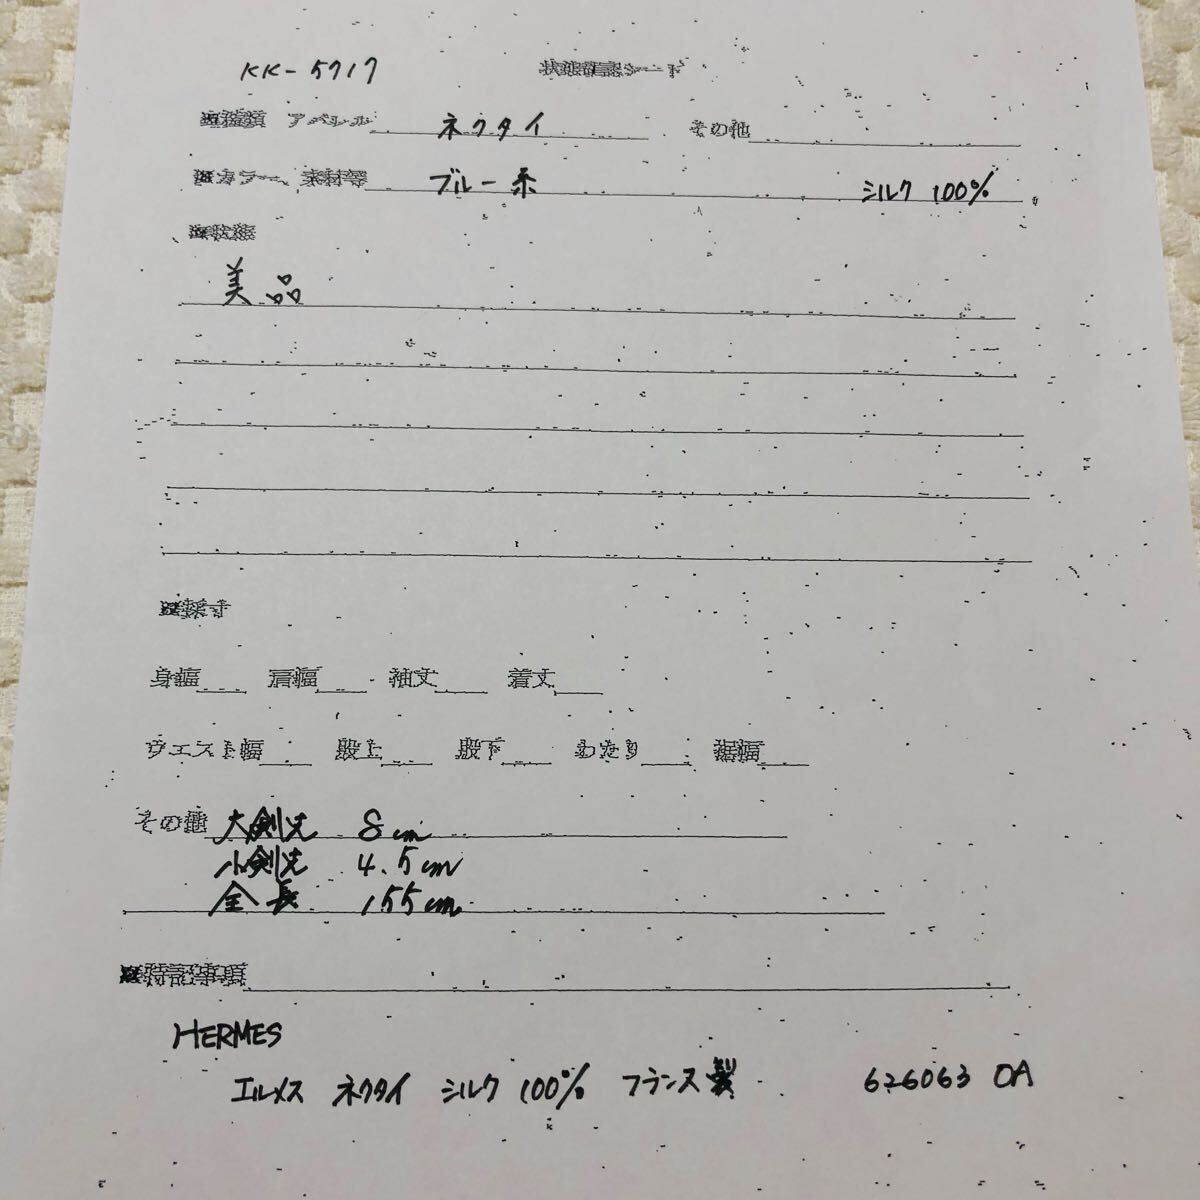 KK-5717 状態確認シート
※種類 アパレル ネクタイ その他
※カラー、素材等 ブルー系 シルク 100%
※状態
美品
※採寸
身幅 肩幅 袖丈 着丈
ウエスト幅 股上 股下 わたり 裾幅
その他 大剣先 8cm
小剣先 4.5cm
全長 155cm
※特記事項
HERMES
エルメス ネクタイ シルク 100% フランス製 626063 OA